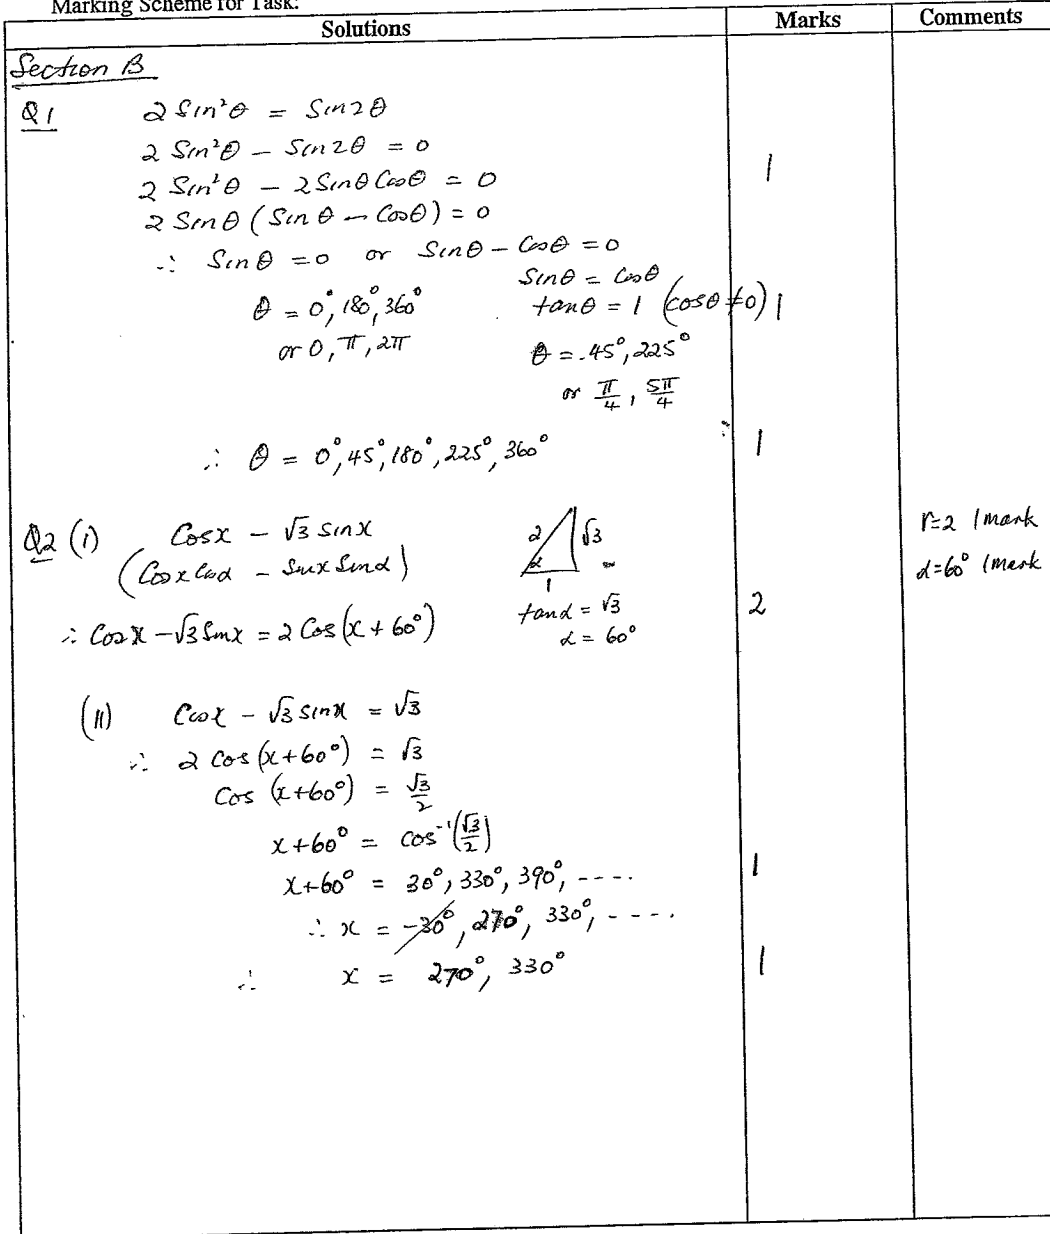 Marking Scheme for Task:
Solutions Marks Comments
Section B
Q1 2 Sin²θ = Sin2θ
2 Sin²θ - Sin2θ = 0
2 Sin²θ - 2SinθCosθ = 0 1
2 Sinθ (Sinθ - Cosθ) = 0
∴ Sinθ = 0 or Sinθ - Cosθ = 0
Sinθ = Cosθ
θ = 0°, 180°, 360° tanθ = 1 (cosθ ≠ 0) 1
or 0, π, 2π θ = 45°, 225°
or π/4, 5π/4
∴ θ = 0°, 45°, 180°, 225°, 360° 1
Q2 (i) Cosx - √3 sinx 2 √3 r=2 1mark
(CosxCosα - SinxSinα) α 1 α=60° 1mark
tanα = √3 2
∴ Cosx - √3 Sinx = 2 Cos(x + 60°) α = 60°
(ii) Cosx - √3 sinx = √3
∴ 2 Cos (x+60°) = √3
Cos (x+60°) = √3/2
x+60° = cos⁻¹(√3/2)
x+60° = 30°, 330°, 390°, ---- 1
∴ x = -30°, 270°, 330°, ----
∴ x = 270°, 330° 1